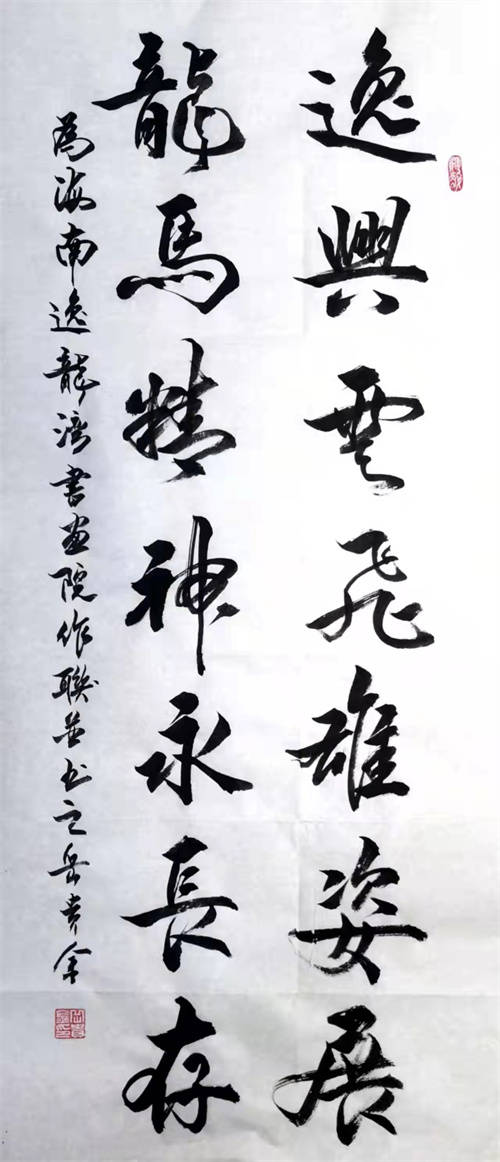 逸興雲飛雄姿展
龍馬精神永長存
為海南逸龍灣書畫院作聯並書之岳貴全